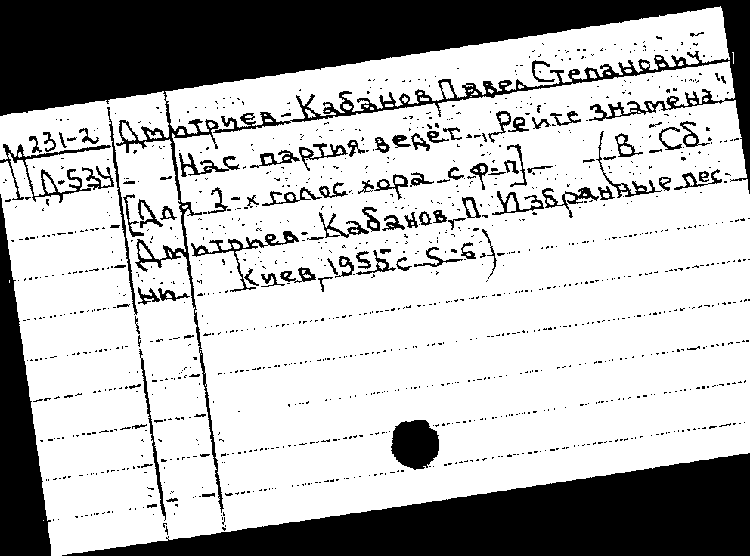 М231-2 Дмитриев-Кабанов, Павел Степанович
Д-534 Нас партия ведёт. "Рейте знамёна"
[Для 2-х голос хора с ф-п]. (В Сб:
Дмитриев-Кабанов, П. Избранные пес-
ни. Киев, 1955 с 5-6.)